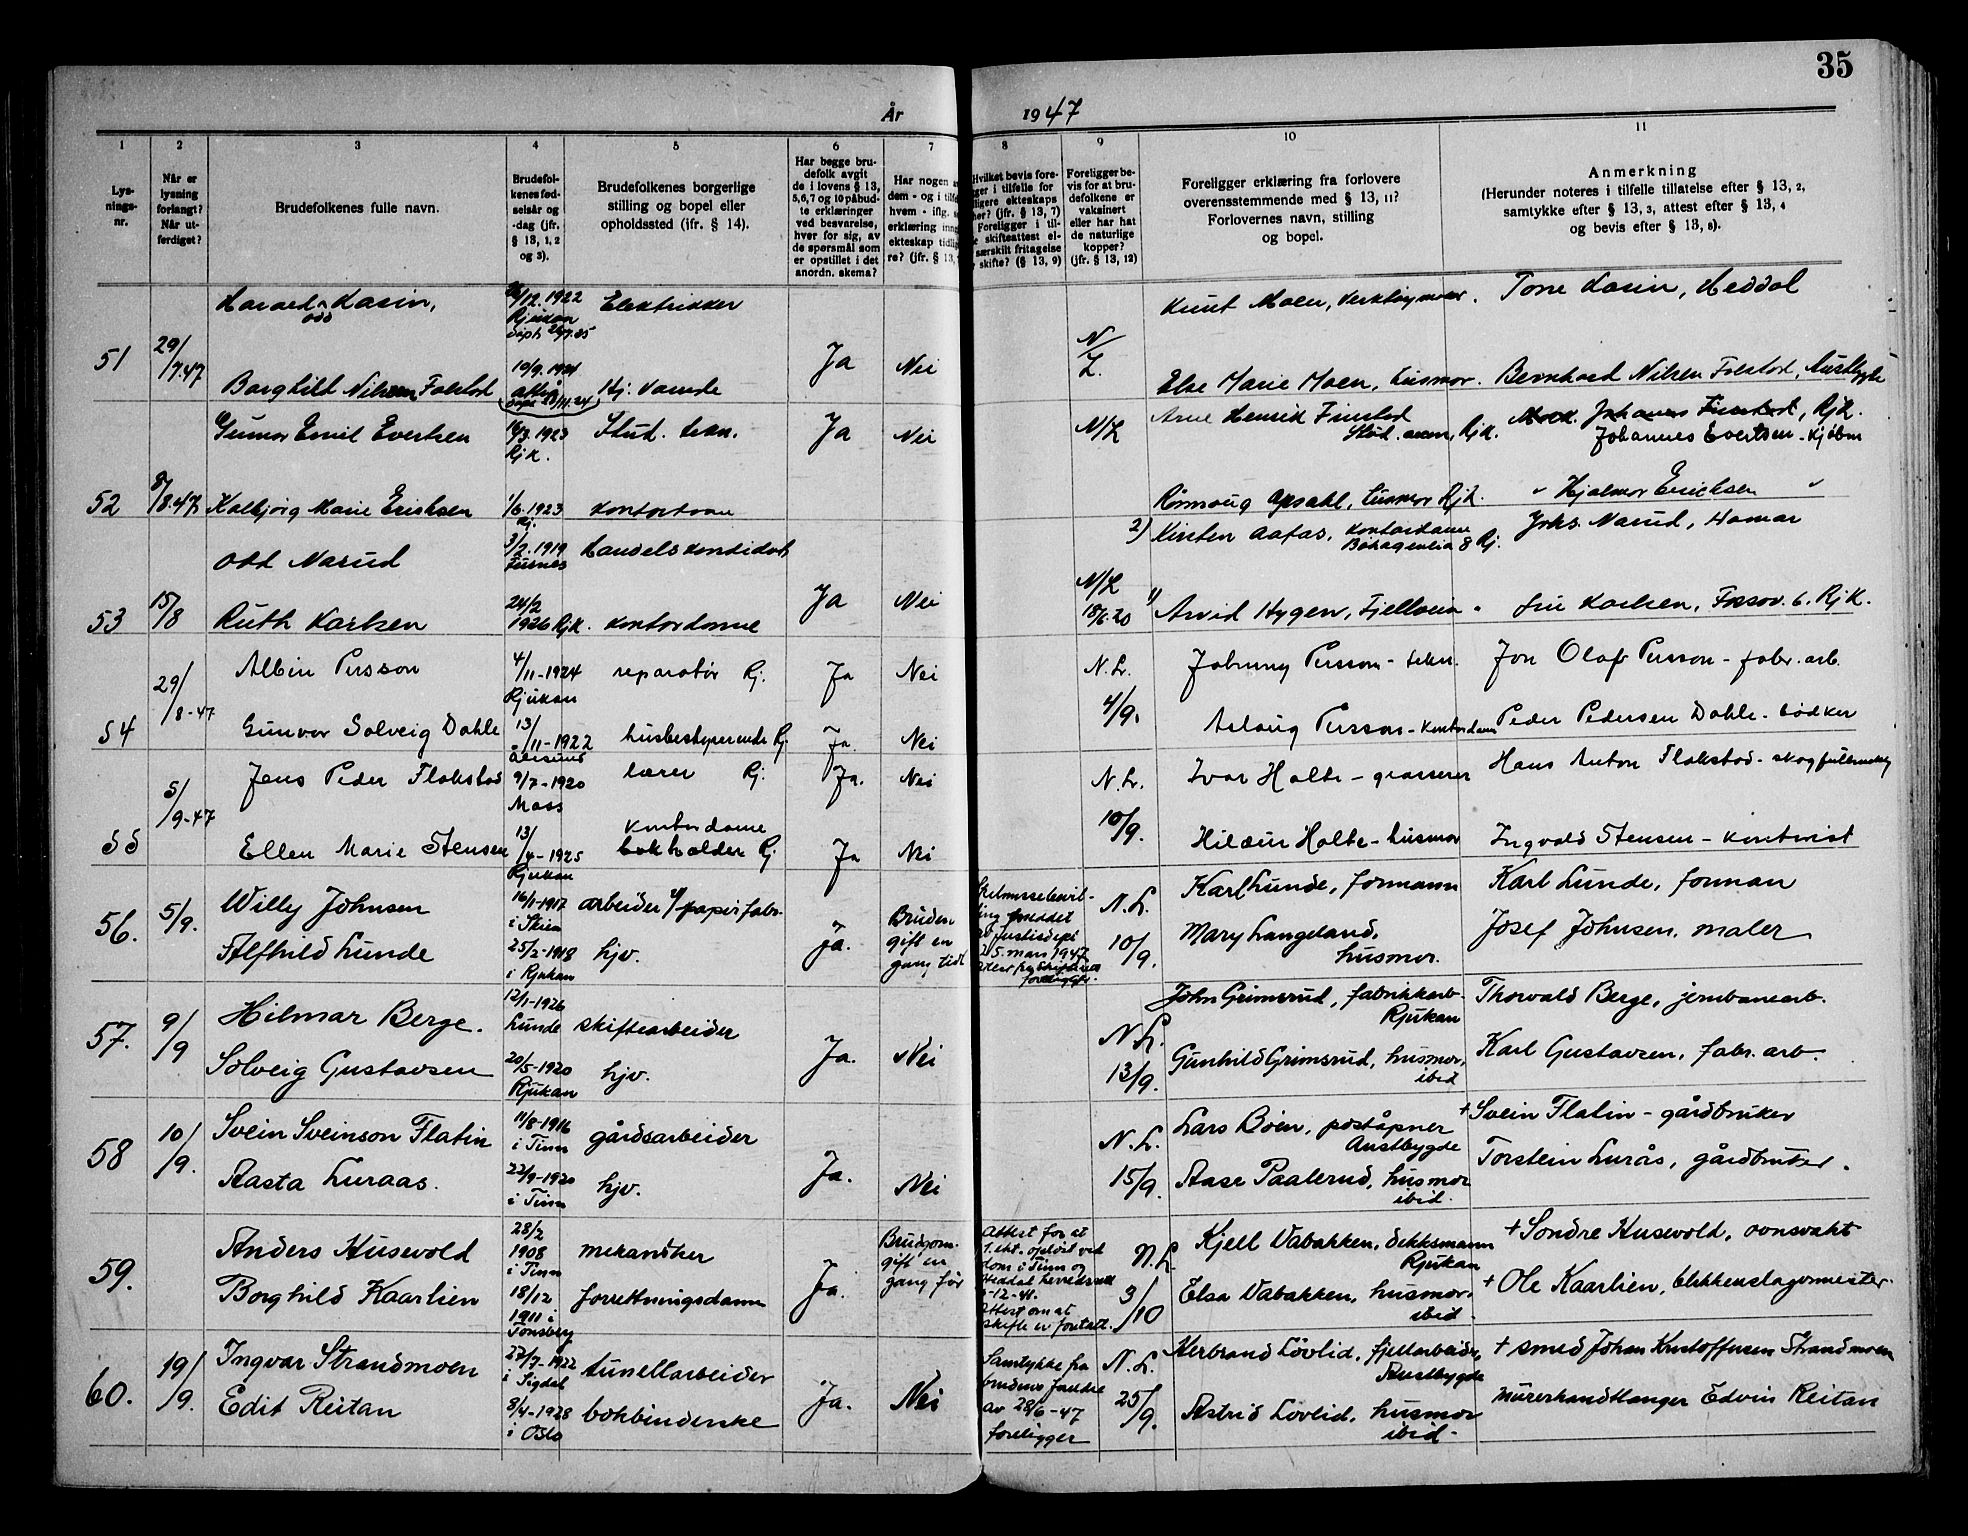 35
År 1947
1 2 3 4 5 6 7 8 9 10 11
Lys-
nings-
nr.
Når er
lysning
forlangt?
Når ut-
ferdiget?
Brudefolkenes fulle navn.
Brudefol-
kenes fød-
selsår og
-dag (jfr.
§ 13, 1, 2
og 3).
Brudefolkenes borgerlige
stilling og bopel eller
opholdssted (ifr. § 14).
Har begge bru-
defolk avgit
de i lovens § 13,
5,6,7 og 10 påbud-
te erklæringer
ved besvarelse,
hver for sig, av
de spørsmål som
er opstillet i det
anordn. skema?
Har nogen
dem - og i tilf
hvem - iflg.
erklæring inng
ekteskap tidlig
re? (jfr. § 13,
Hvilket bevis fore-
ger i tilfelle for
ligere ekteskaps
her? (jfr. § 13, 7)
Foreligger i til-
e skifteattest el-
særskilt fritagelse
skifte? (§ 13, 9)
Foreligger be-
vis for at bru-
defolkene er
vaksinert
eller har hat
de naturlige
kopper?
(jfr. § 13, 12)
Foreligger erklæring fra forlovere
overensstemmende med § 13, 11?
Forlovernes navn, stilling
og bopel.
Anmerkning
(Herunder noteres i tilfelle tillatelse efter § 13, 2,
samtykke efter § 13, 3, attest efter § 13, 4
og bevis efter § 13, 8).
51 29/7.47 Harald Odd Kasin, /12.1922 Rjukan Elektriker Ja Nei N/L. Knut Moen, Tone Kasin, Heddal
Borghild Nilsen Folstad 19/9.1924 Hj. Else Marie Moen, husmor. Bernhard Nilsen Folstad, Austbygde
52 8/8.47 Gunnar Emil Evertsen 16/3.1923 Rjk. Stud. tekn. Ja Nei N/L Arne Henrik Finstad Stud. Rjk. Johannes Finstad, Rjk.
Johannes Evertsen
Kalbjørg Marie Erichsen 1/6.1923 Rj. Kontordame Rønnaug Opsahl, husmor Rjk. " Hjalmar Erichsen "
53 15/8 Odd Narud 3/2.1919 Furnes Handelskandidat Ja Nei N/L 18/6.20 2) Kirsten Aafas, Kontordame 8 Rj. Johs. Narud, Hamar
Ruth Karlsen 24/2 1926 Rjk. Kontordame 1) Arvid Hygen, Karlsen, Fossov. 6. Rjk.
54 29/8-47 Albin Persson 4/11-1924 Rjukan reparatør Rj. Ja Nei N.L. 4/9. Johnny Persson - tekn. Jon Olof Persson - fabr. arb.
Gunvor Solveig Dahle 13/11-1922 Ålesund husbestyrerinde Rj. Ja. Nei Aslaug Persson - Kontordame Peder Pedersen Dahle - bødker
55 5/9-47 Jens Peder Flakstad 9/7-1920 Moss lærer Rj. Ja. Nei N.L. 10/9. Ivar Holte - grosserer Hans Anton Flakstad - skogfullmektig
Ellen Marie Stensen 13/4-1925 Rjukan kontordame bokholder Rj. Ja Nei Hildur Holte - husmor Ingvald Stensen - kontorist
56. 5/9. Willy Johnsen 16/1-1917 i Skien arbeider v/papirfabr. Ja. Bruden gift en gang tidl N.L. 10/9. Karl Lunde, formann Karl Lunde, forman
Alfhild Lunde 25/2-1918 i Rjukan hjv. Mary Langeland, husmor. Josef Johnsen, maler
57. 9/9 Hilmar Berge. 12/1-1926 Lunde skiftearbeider Ja. Nei N.L. 13/9. John Grimsrud, fabrikkarb. Rjukan Thorvald Berge, jernbanearb.
Solveig Gustavsen 20/5-1920 Rjukan hjv. Gunhild Grimsrud, husmor, ibid Karl Gustavsen, fabr. arb.
58 10/9. Svein Sveinson Flatin 11/8-1916 i Tinn gårdsarbeider Ja. Nei N.L. 15/9. Lars Bøen, poståpner Austbygde + Svein Flatin - gårdbruker
Aasta Luraas. 22/9-1920 i Tinn hjv. Aase Paalerud, husmor ibid. Torstein Lurås, gårdbruker.
59. Anders Husevold 28/2 1908 i Tinn mekaniker Ja. Brudgom. gift en gang før Attest for at 1. ekt. opløst ved dom i Tinn og Heddal herredsrett -12-41. Attest om at skifte er foretatt. N.L. 3/10 Kjell Vabakken, dekksmann Rjukan + Sondre Husevold, ovnsvakt
Borghild Kaarlien 18/12 1911 i Tønsberg forretningsdame Elsa Vabakken, husmor, ibid + Ole Kaarlien, blikkenslagermester.
60. 19/9. Ingvar Strandmoen 27/7-1922 i Sigdal tunellarbeider Ja. Nei Samtykke fra brudens foreldre av 28/6-47 foreligger N.L. 25/9. Herbrand Løvlid, fjellarbeider, Austbygde + smed Johan Kristoffersen Strandmoen
Edit Reitan 8/4-1928 i Oslo bokbinderske Astrid Løvlid, husmor ibid - murerhandtlanger Edvin Reitan